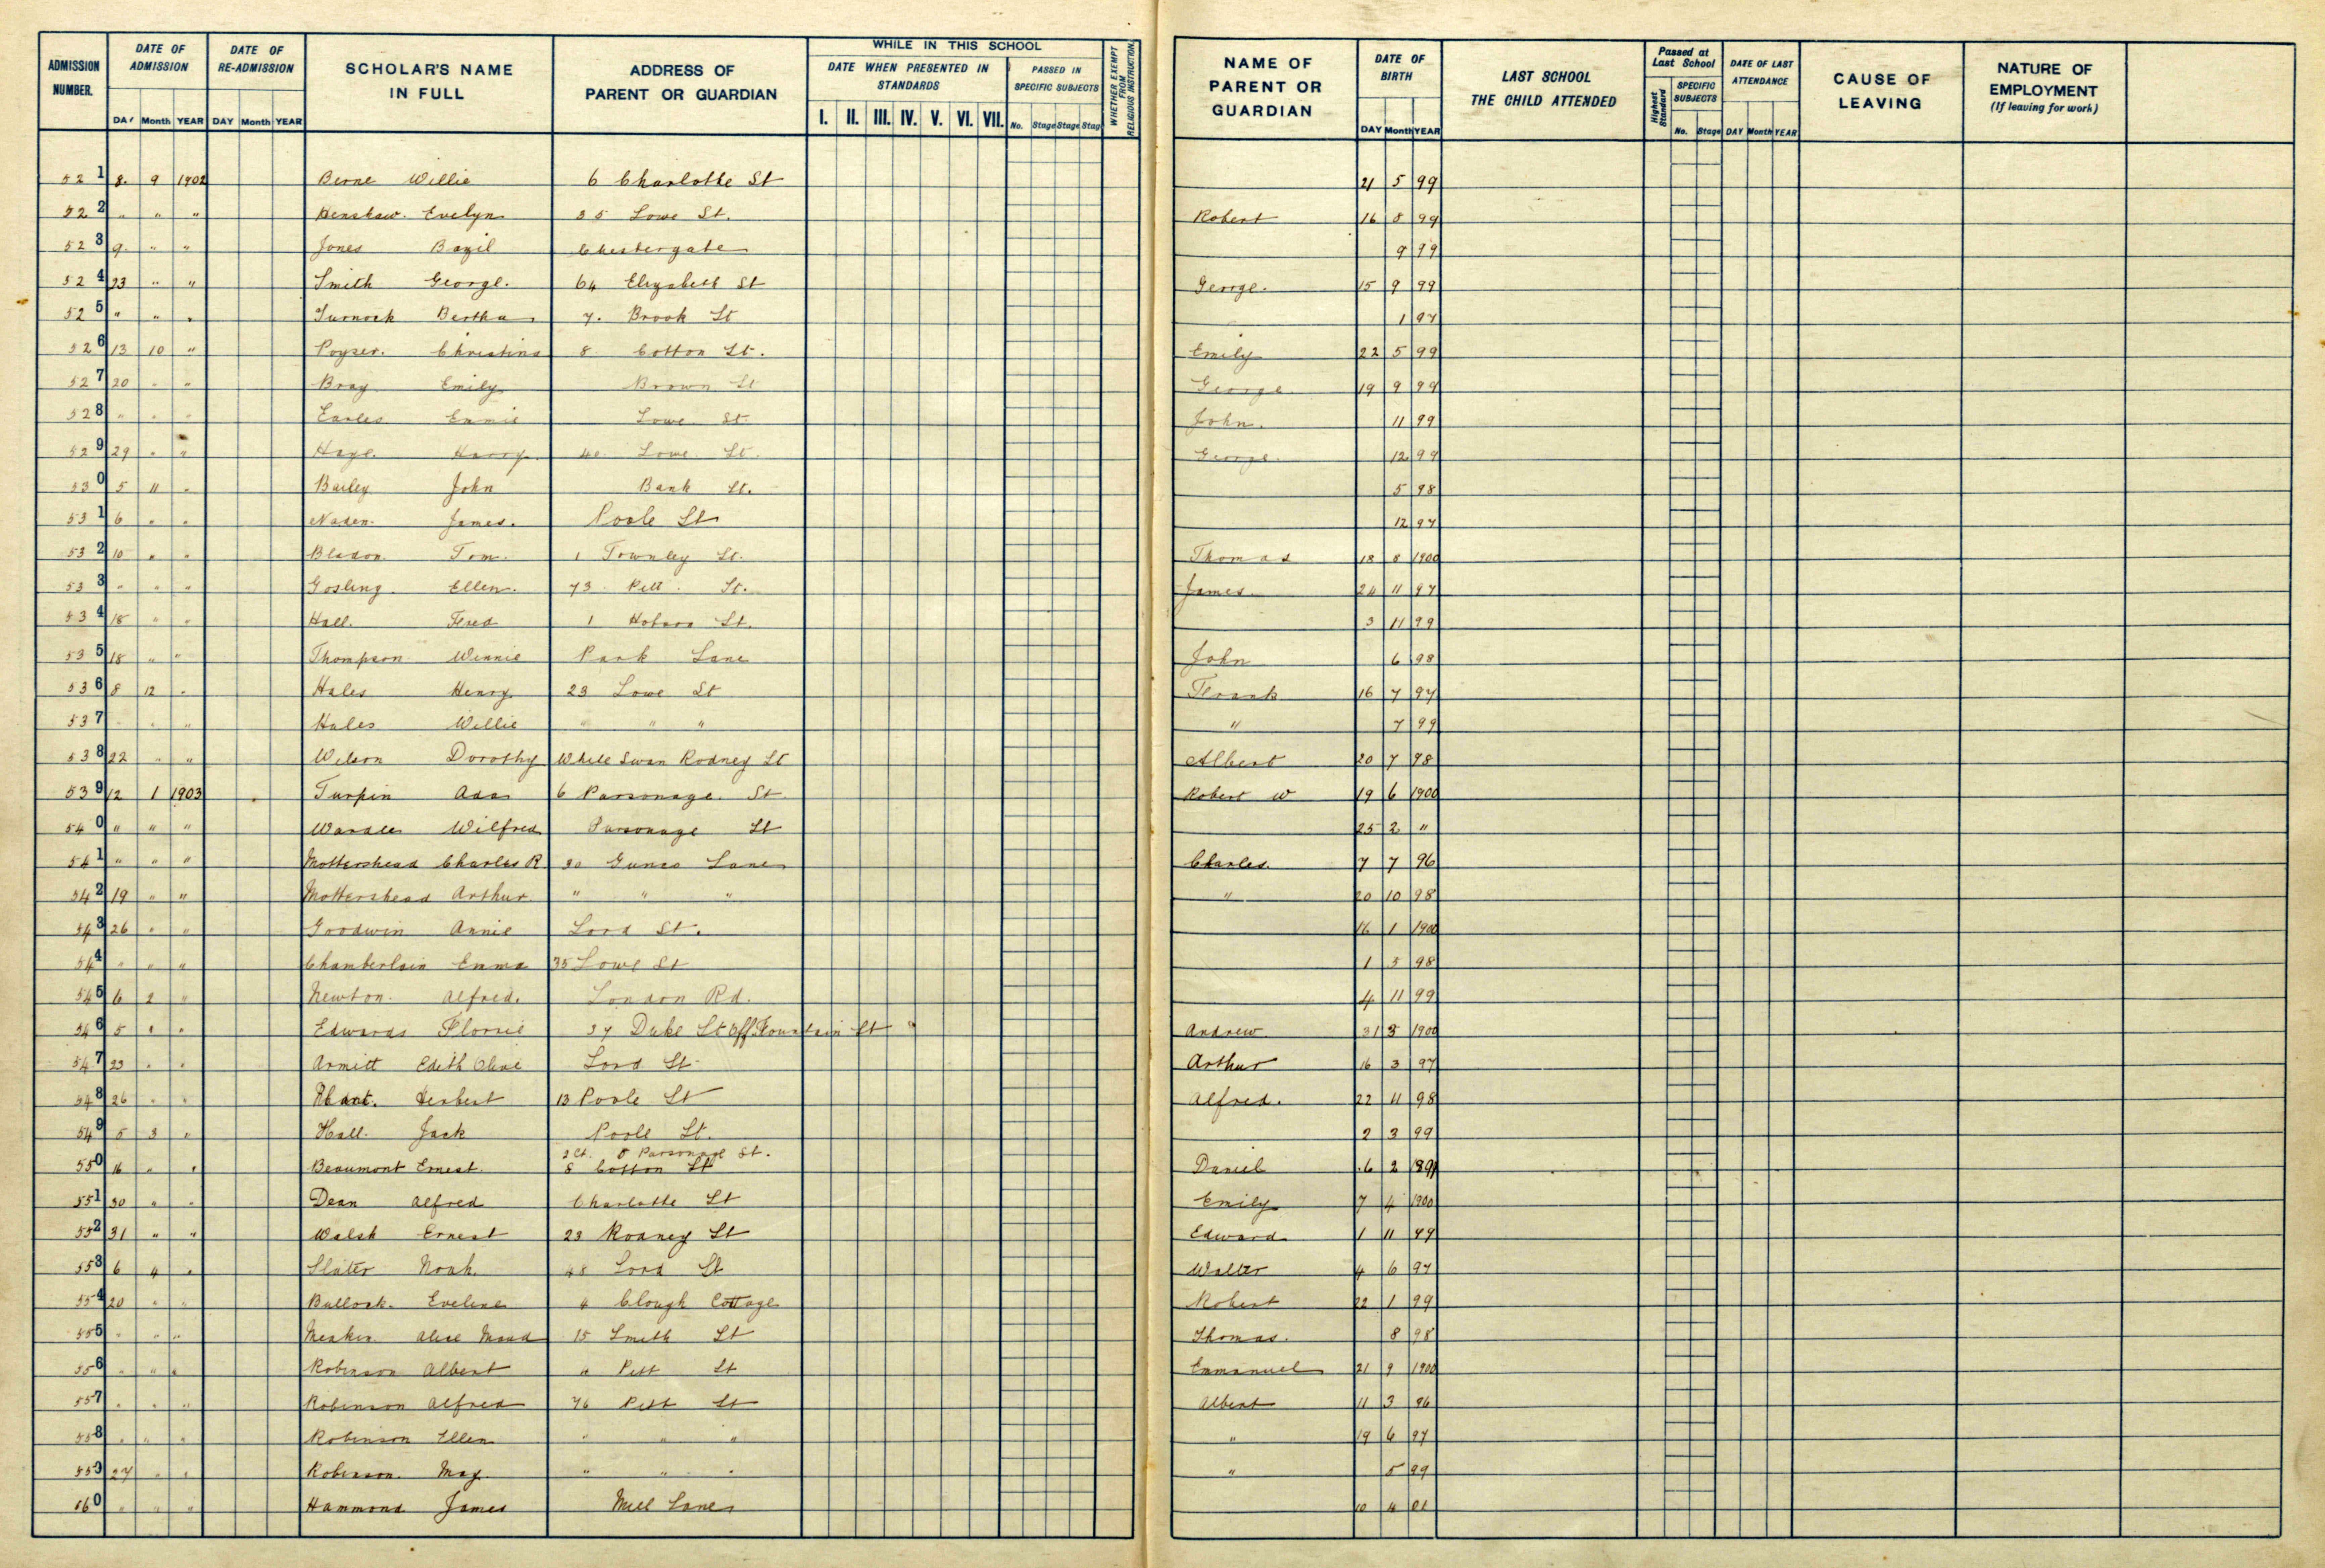 ADMISSION NUMBER. DATE OF ADMISSION DAY Month YEAR DATE OF RE-ADMISSION DAY Month YEAR SCHOLAR'S NAME IN FULL ADDRESS OF PARENT OR GUARDIAN WHILE IN THIS SCHOOL DATE WHEN PRESENTED IN STANDARDS I. II. III. IV. V. VI. VII. PASSED IN SPECIFIC SUBJECTS No. Stage Stage Stage WHETHER EXEMPT FROM RELIGIOUS INSTRUCTION. NAME OF PARENT OR GUARDIAN DATE OF BIRTH DAY Month YEAR LAST SCHOOL THE CHILD ATTENDED Passed at Last School Highest Standard SPECIFIC SUBJECTS No. Stage DATE OF LAST ATTENDANCE DAY Month YEAR CAUSE OF LEAVING NATURE OF EMPLOYMENT (If leaving for work)
521 8. 9 1902 Berne Willie 6 Charlotte St 21 5 99
522 " " " Henshaw. Evelyn 35 Lowe St. Robert 16 8 99
523 9. " " Jones Bazil Chestergate 9 99
524 23 " " Smith George. 64 Elizabeth St George. 15 9 99
525 " " " Turnock Bertha 7. Brook St 1 97
526 13 10 " Poyser. Christina 8 Cotton St. Emily 22 5 99
527 20 " " Bray Emily Brown St George 19 9 99
528 " " " Earles Ennie Lowe St John. 11 99
529 29 " " Harry 40 Lowe St. George 12 99
530 5 11 " Bailey John Bank St. 5 98
531 6 " " Naden. James. Poole St 12 97
532 10 " " Bladon. Tom. 1 Townley St. Thomas 18 8 1900
533 " " " Gosling. Ellen. 73 Pitt St. James. 24 11 97
534 18 " " Hall. Fred 1 St. 3 11 99
535 18 " " Thompson Winnie Park Lane John 6 98
536 8 12 " Hales Henry 23 Lowe St Frank 16 7 97
537 " " " Hales Willie " " " " 7 99
538 22 " " Wilson Dorothy White Swan Rodney St Albert 20 7 98
539 12 1 1903 Turpin Ada 6 Parsonage St Robert W 19 6 1900
540 " " " Wardle Wilfred Parsonage St 25 2 "
541 " " " Mottershead Charles R 30 Gunco Lane Charles. 7 7 96
542 19 " " Mottershead Arthur. " " " " 20 10 98
543 26 " " Goodwin Annie Lord St. 16 1 1900
544 " " " Chamberlain Emma 35 Lowe St 1 5 98
545 6 2 " Newton. Alfred. London Rd. 4 11 99
546 5 " " Edwards Florrie 37 Duke St Off Fountain St Andrew 31 3 1900
547 23 " " Armitt Edith Olive Lord St Arthur 16 3 97
548 26 " " Herbert 13 Poole St Alfred. 22 11 98
549 5 3 " Hall. Jack Poole St. 2 3 99
2 Ct. 8 Parsonage St.
550 16 " " Beaumont Ernest. 8 Cotton St Daniel 6 2 1891
551 30 " " Dean Alfred Charlotte St Emily 7 4 1900
552 31 " " Walsh Ernest 23 Rodney St Edward 1 11 99
553 6 4 " Slater Noah. 48 Lord St Walter 4 6 97
554 20 " " Bullock. Eveline 4 Clough Cottage Robert 22 1 99
555 " " " Meakin. Alice Maud 15 Smith St Thomas. 8 98
556 " " " Robinson Albert " Pitt St Emmanuel 21 9 1900
557 " " " Robinson Alfred 76 Pitt St Albert 11 3 96
558 " " " Robinson Ellen " " " " 19 6 97
559 27 " " Robinson. May. " " " " 5 99
560 " " " Hammond James Mill Lane 10 4 01